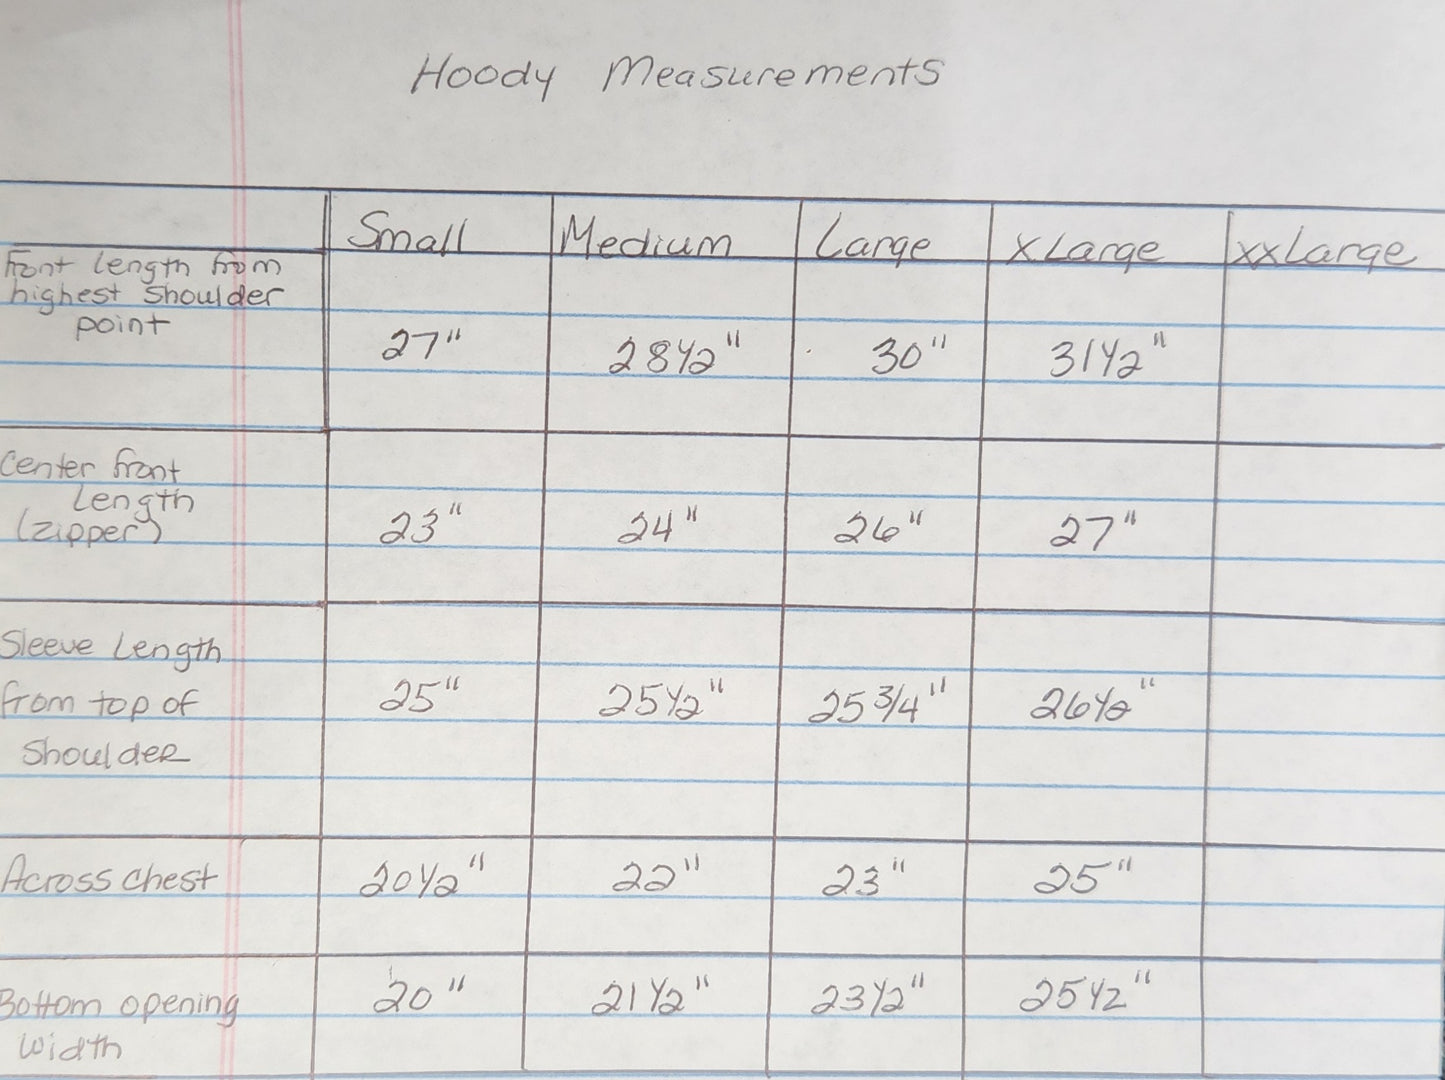 Hoody Measurements
Small Medium Large XLarge XXLarge
Front Length from
highest Shoulder
point
27" 28 1/2" 30" 31 1/2"
Center front
Length
(zipper)
23" 24" 26" 27"
Sleeve Length
from top of
Shoulder
25" 25 1/2" 25 3/4" 26 1/2"
Across chest 20 1/2" 22" 23" 25"
Bottom opening
width
20" 21 1/2" 23 1/2" 25 1/2"